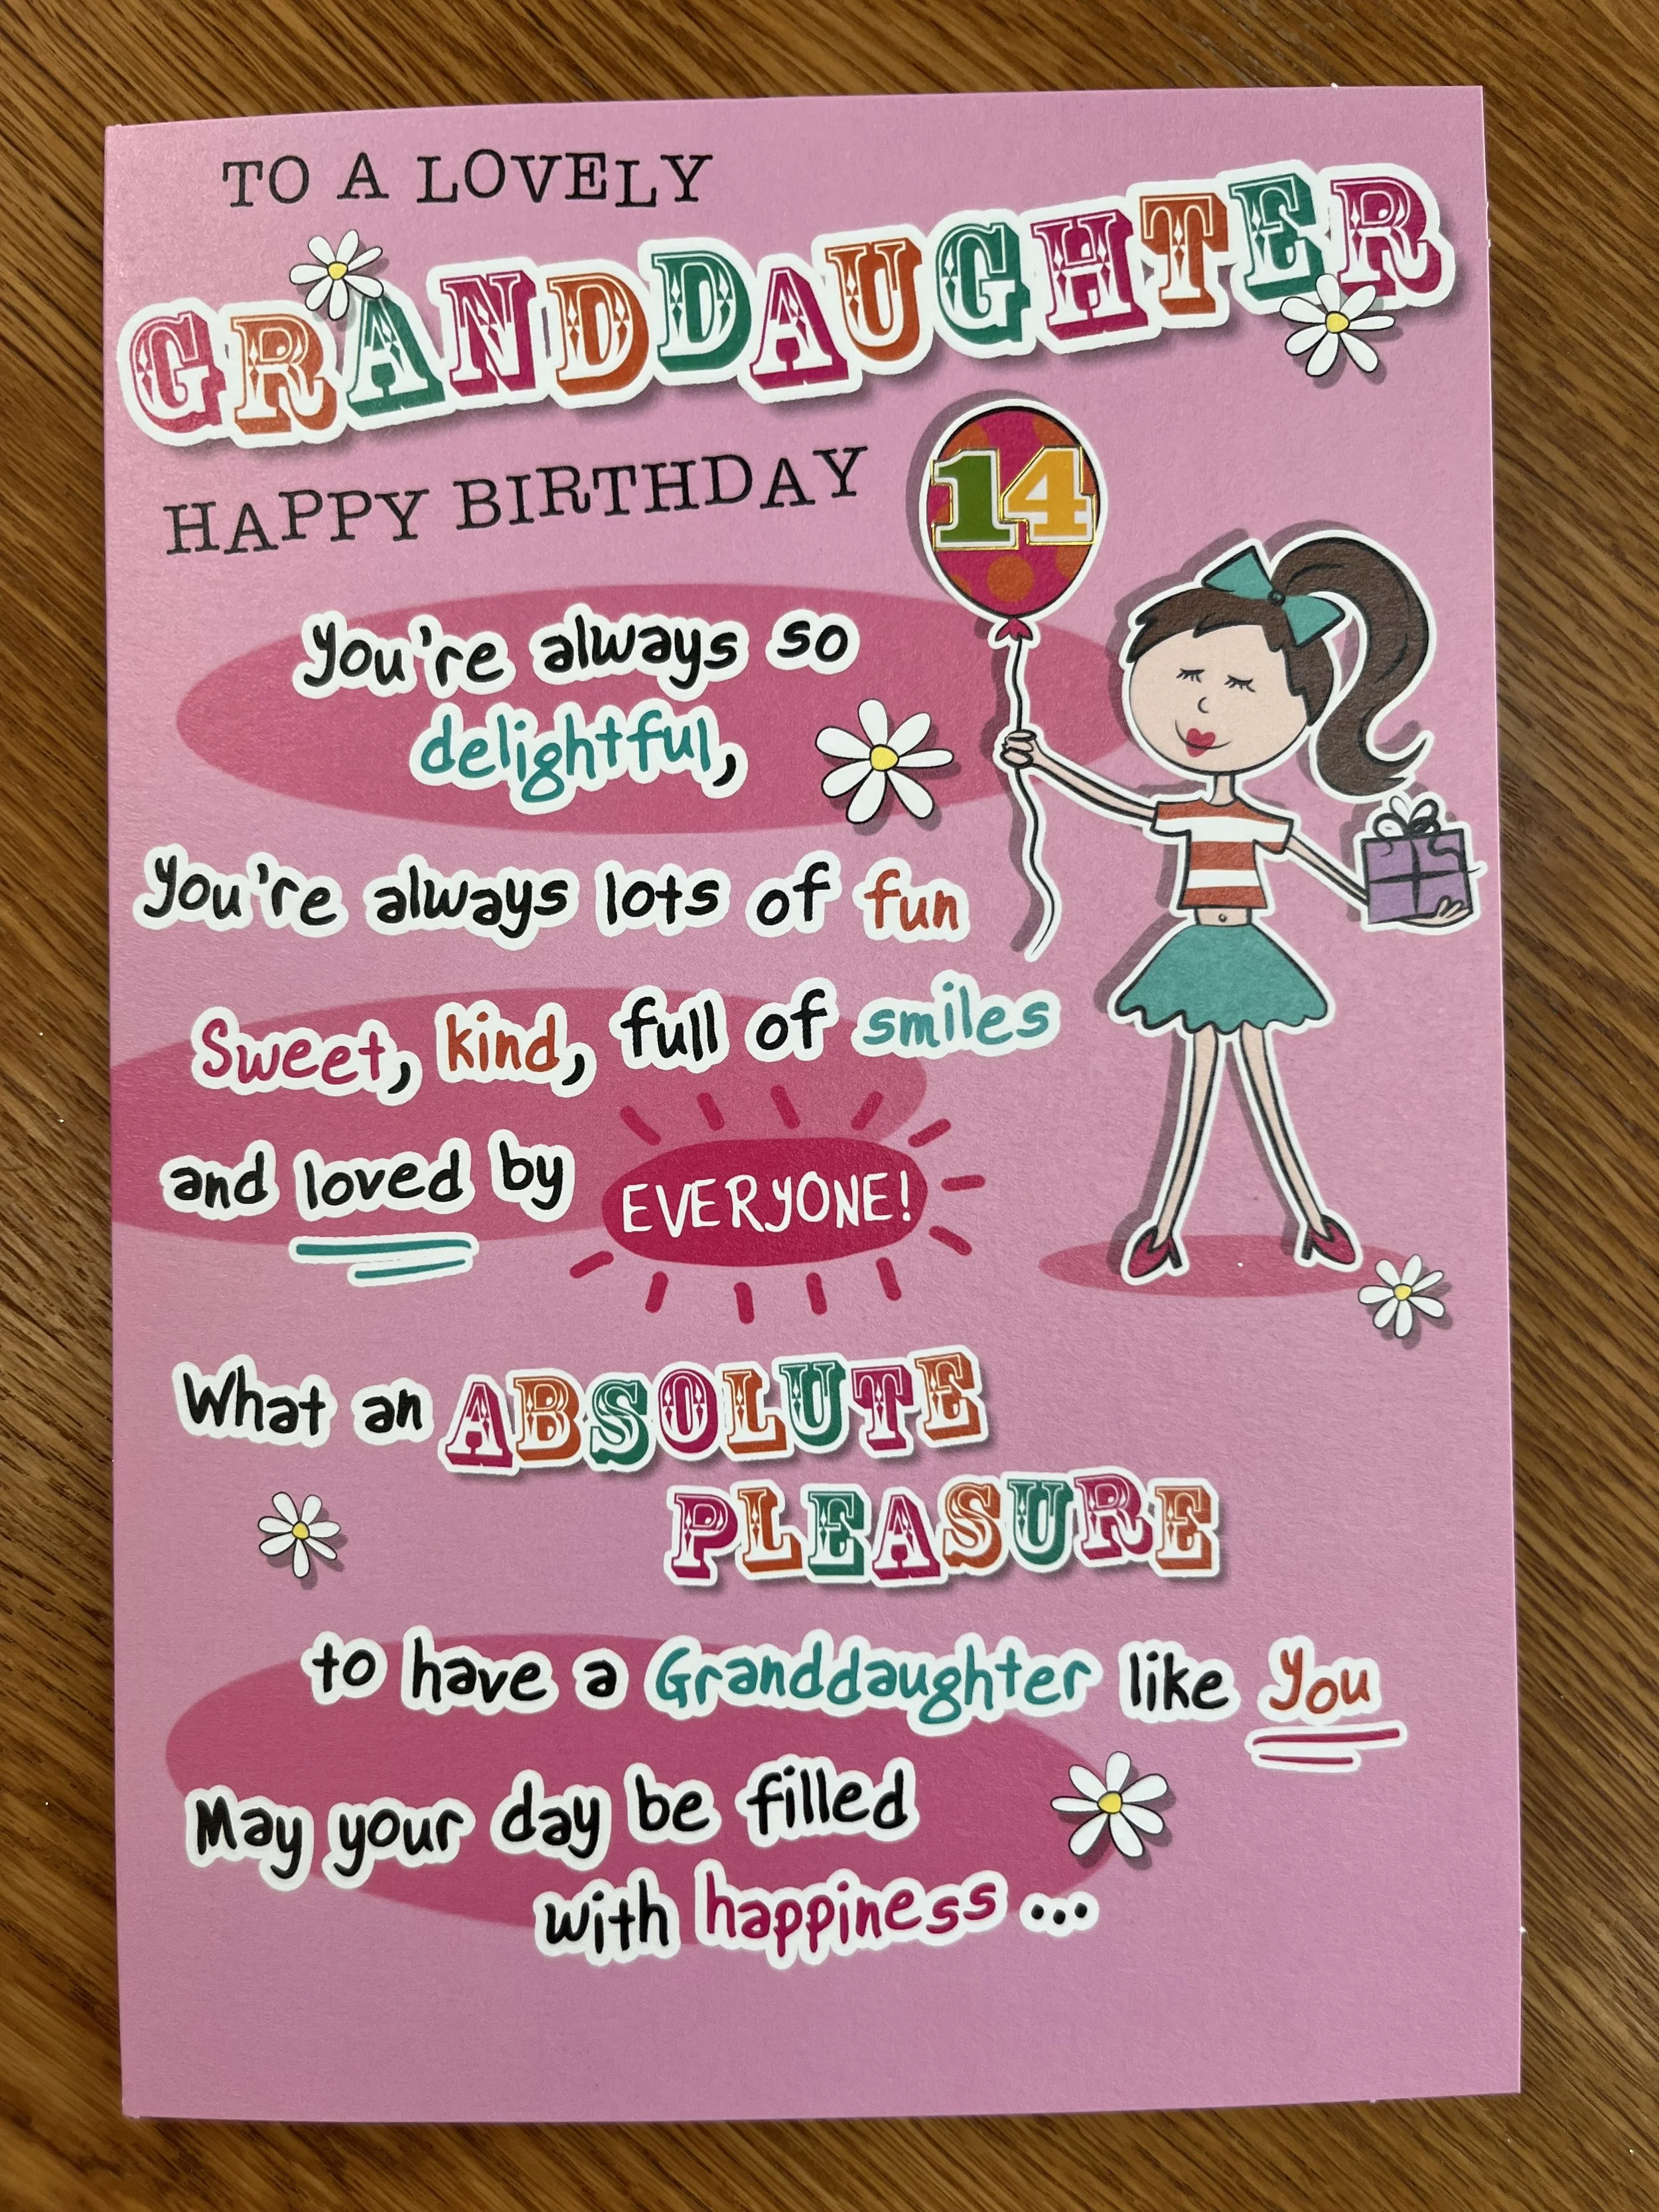 TO A LOVELY
GRANDDAUGHTER
HAPPY BIRTHDAY
14
You're always so
delightful,
You're always lots of fun
Sweet, kind, full of smiles
and loved by EVERYONE!
What an ABSOLUTE
PLEASURE
to have a Granddaughter like You
May your day be filled
with happiness ...